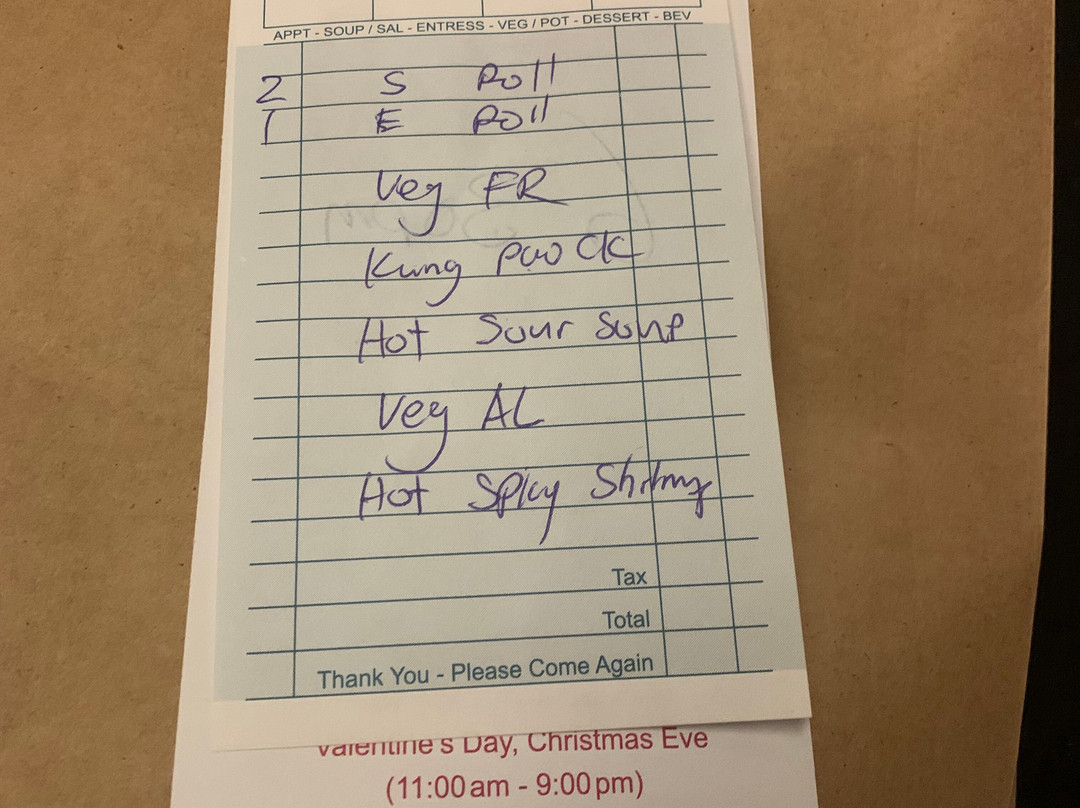 APPT - SOUP / SAL - ENTRESS - VEG / POT - DESSERT - BEV
2 S Roll
1 E Roll
Veg FR
Kung pao CK
Hot Sour Soup
Veg AL
Hot Spicy Shrimp
Tax
Total
Thank You - Please Come Again
Valentine's Day, Christmas Eve
(11:00am - 9:00pm)